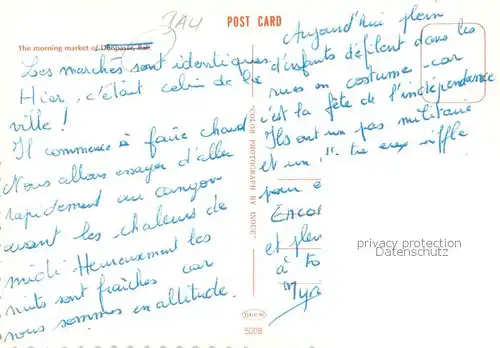 BALI
POST CARD
The morning market of Denpasar, Bali.
Les marchés sont identiques
Hier, c'était celui de la
ville !
Il commence à faire chaud
Nous allons essayer d'aller
rapidement au canyon
avant les chaleurs de
midi. Heureusement les
nuits sont fraîches car
nous sommes en altitude.
Aujourd'hui plein
d'enfants défilent dans les
rues en costume car
c'est la fête de l'indépendance
Ils ont un pas militaire
et un " tre eux siffle
pour
Encor
et plen
à to
COLOR PHOTOGRAPH BY INOUE
5008
privacy protection
DallasCollectibles